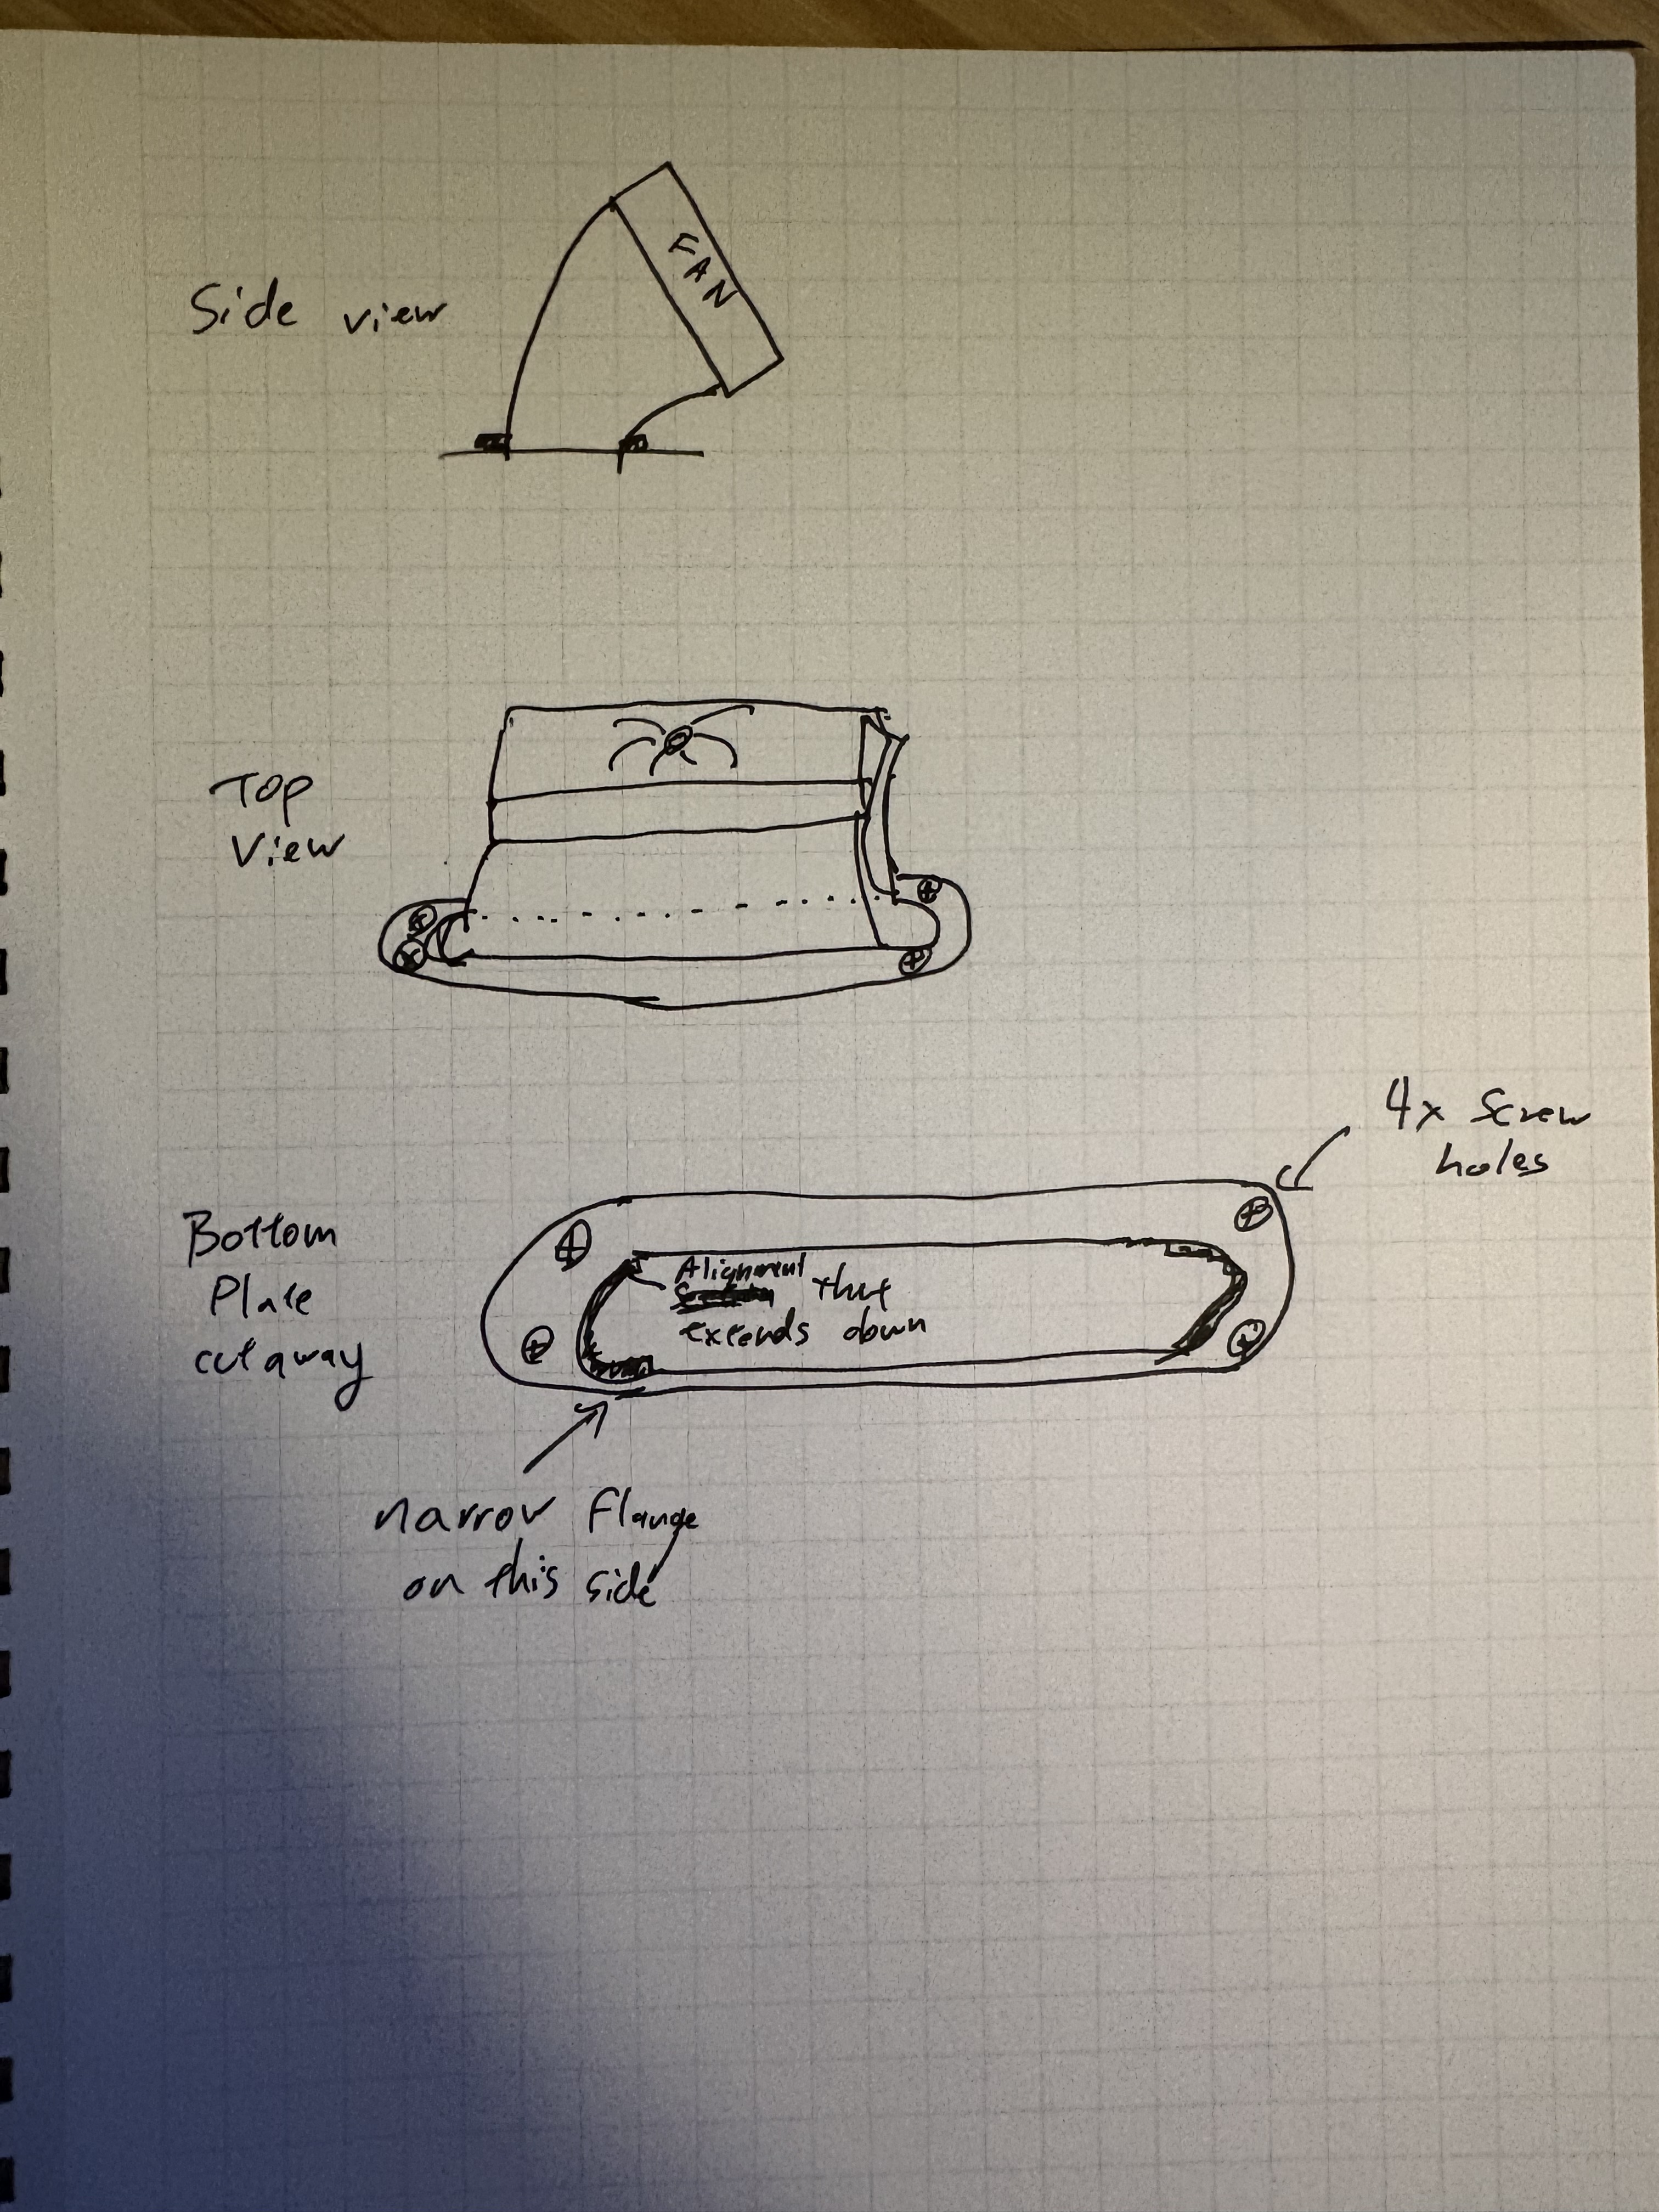 FAN
Side view
Top
View
4x Screw
holes
Bottom
Plate
cutaway
Alignment
that
extends down
narrow flange
on this side